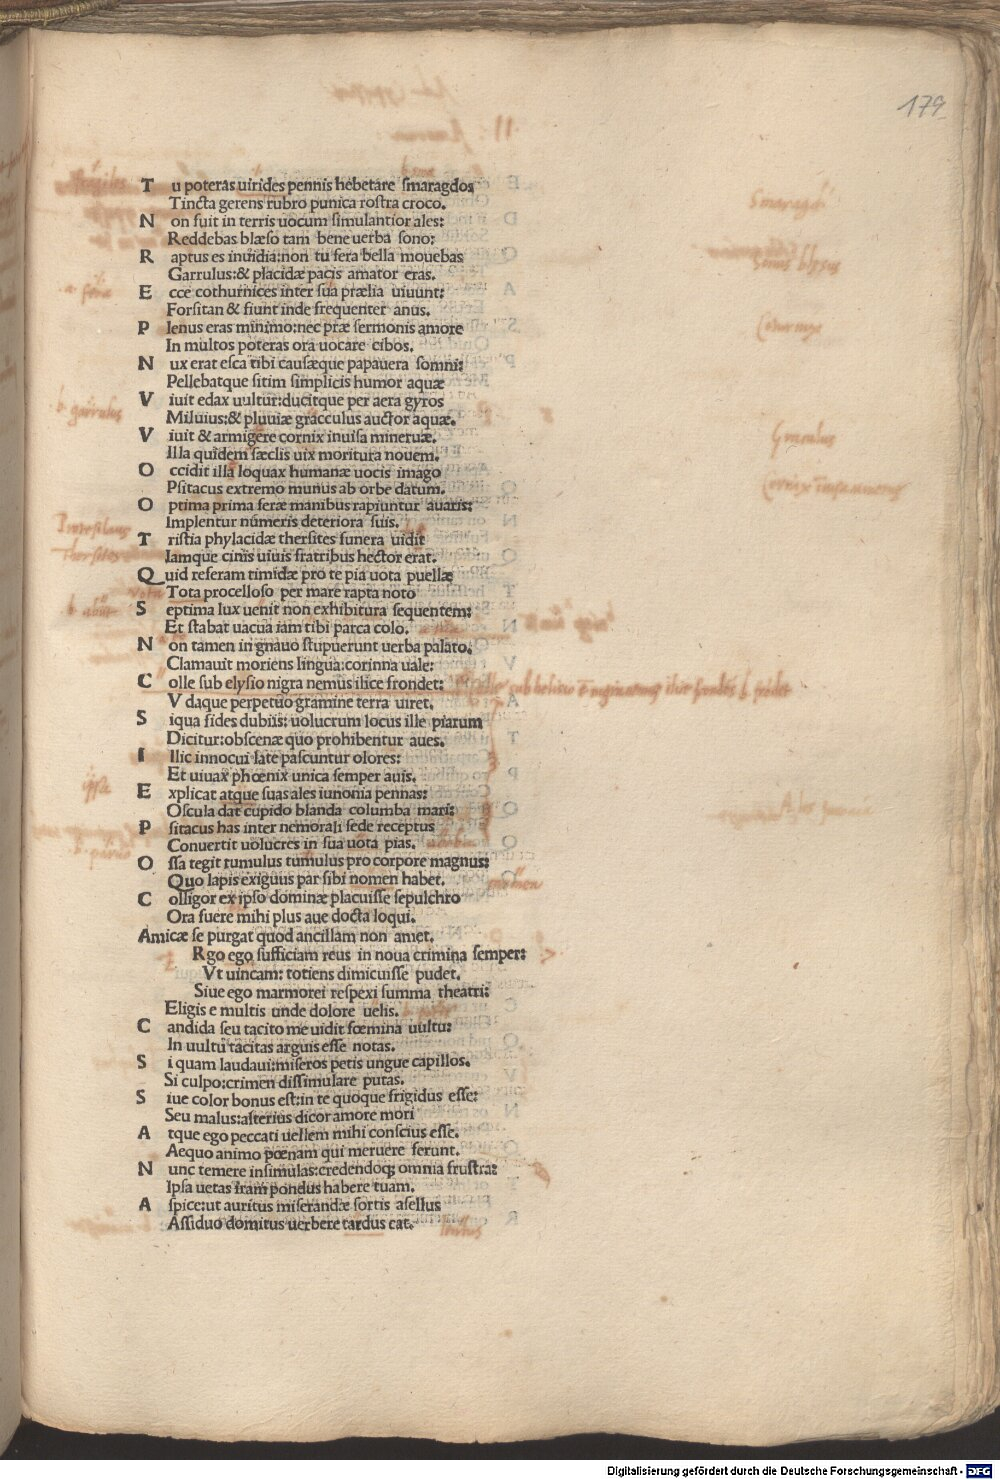 179
Tu poteras uirides pennis hebetare smaragdos
Tincta gerens rubro punica rostra croco.
Non fuit in terris uocum simulantior ales:
Reddebas blæso tam bene uerba sono:
Raptus es inuidia: non tu fera bella mouebas
Garrulus: & placidæ pacis amator eras.
Ecce cothurnices inter sua prælia uiuunt:
Forsitan & fiunt inde frequenter anus.
Plenus eras minimo: nec præ sermonis amore
In multos poteras ora uocare cibos.
Nux erat esca tibi causæque papauera somni:
Pellebatque sitim simplicis humor aquæ
Viuit edax uultur: ducitque per aera gyros
Miluius: & pluuiæ gracculus auctor aquæ.
Viuit & armigere cornix inuisa mineruæ.
Illa quidem sæclis uix moritura nouem.
Occidit illa loquax humanæ uocis imago
Psitacus extremo munus ab orbe datum.
Optima prima feræ manibus rapiuntur auaris:
Implentur numeris deteriora suis.
Tristia phylacidæ thersites funera uidit
Iamque cinis uiuis fratribus hector erat.
Quid referam timidæ pro te pia uota puellæ
Tota procelloso per mare rapta noto
Septima lux uenit non exhibitura sequentem:
Et stabat uacua iam tibi parca colo.
Non tamen in gnauo stupuerunt uerba palato.
Clamauit moriens lingua: corinna uale:
Colle sub elysio nigra nemus ilice frondet:
Vdaque perpetuo gramine terra uiret.
Siqua fides dubiis: uolucrum locus ille piarum
Dicitur: obscenæ quo prohibentur aues.
Illic innocui late pascuntur olores:
Et uiuax phœnix unica semper auis.
Explicat atque suas ales iunonia pennas:
Oscula dat cupido blanda columba mari:
Psitacus has inter nemorali sede receptus
Conuertit uolucres in sua uota pias.
Ossa tegit tumulus tumulus pro corpore magnus:
Quo lapis exiguus par sibi nomen habet.
Colligor ex ipso dominæ placuisse sepulchro
Ora fuere mihi plus aue docta loqui.
Amicæ se purgat quod ancillam non amet.
Rgo ego sufficiam reus in noua crimina semper:
Vt uincam: totiens dimicuisse pudet.
Siue ego marmorei respexi summa theatri:
Eligis e multis unde dolore uelis.
Candida seu tacito me uidit fœmina uultu:
In uultu tacitas arguis esse notas.
Si quam laudaui: miseros petis ungue capillos.
Si culpo: crimen dissimulare putas.
Siue color bonus est: in te quoque frigidus esse:
Seu malus: asterius dicor amore mori
Atque ego peccati uellem mihi conscius esse.
Aequo animo pœnam qui meruere ferunt.
Nunc temere insimulas: credendoq; omnia frustra:
Ipsa uetas iram pondus habere tuam.
Aspice: ut auritus miserandæ sortis asellus
Assiduo domitus uerbere tardus eat.
Digitalisierung gefördert durch die Deutsche Forschungsgemeinschaft - DFG